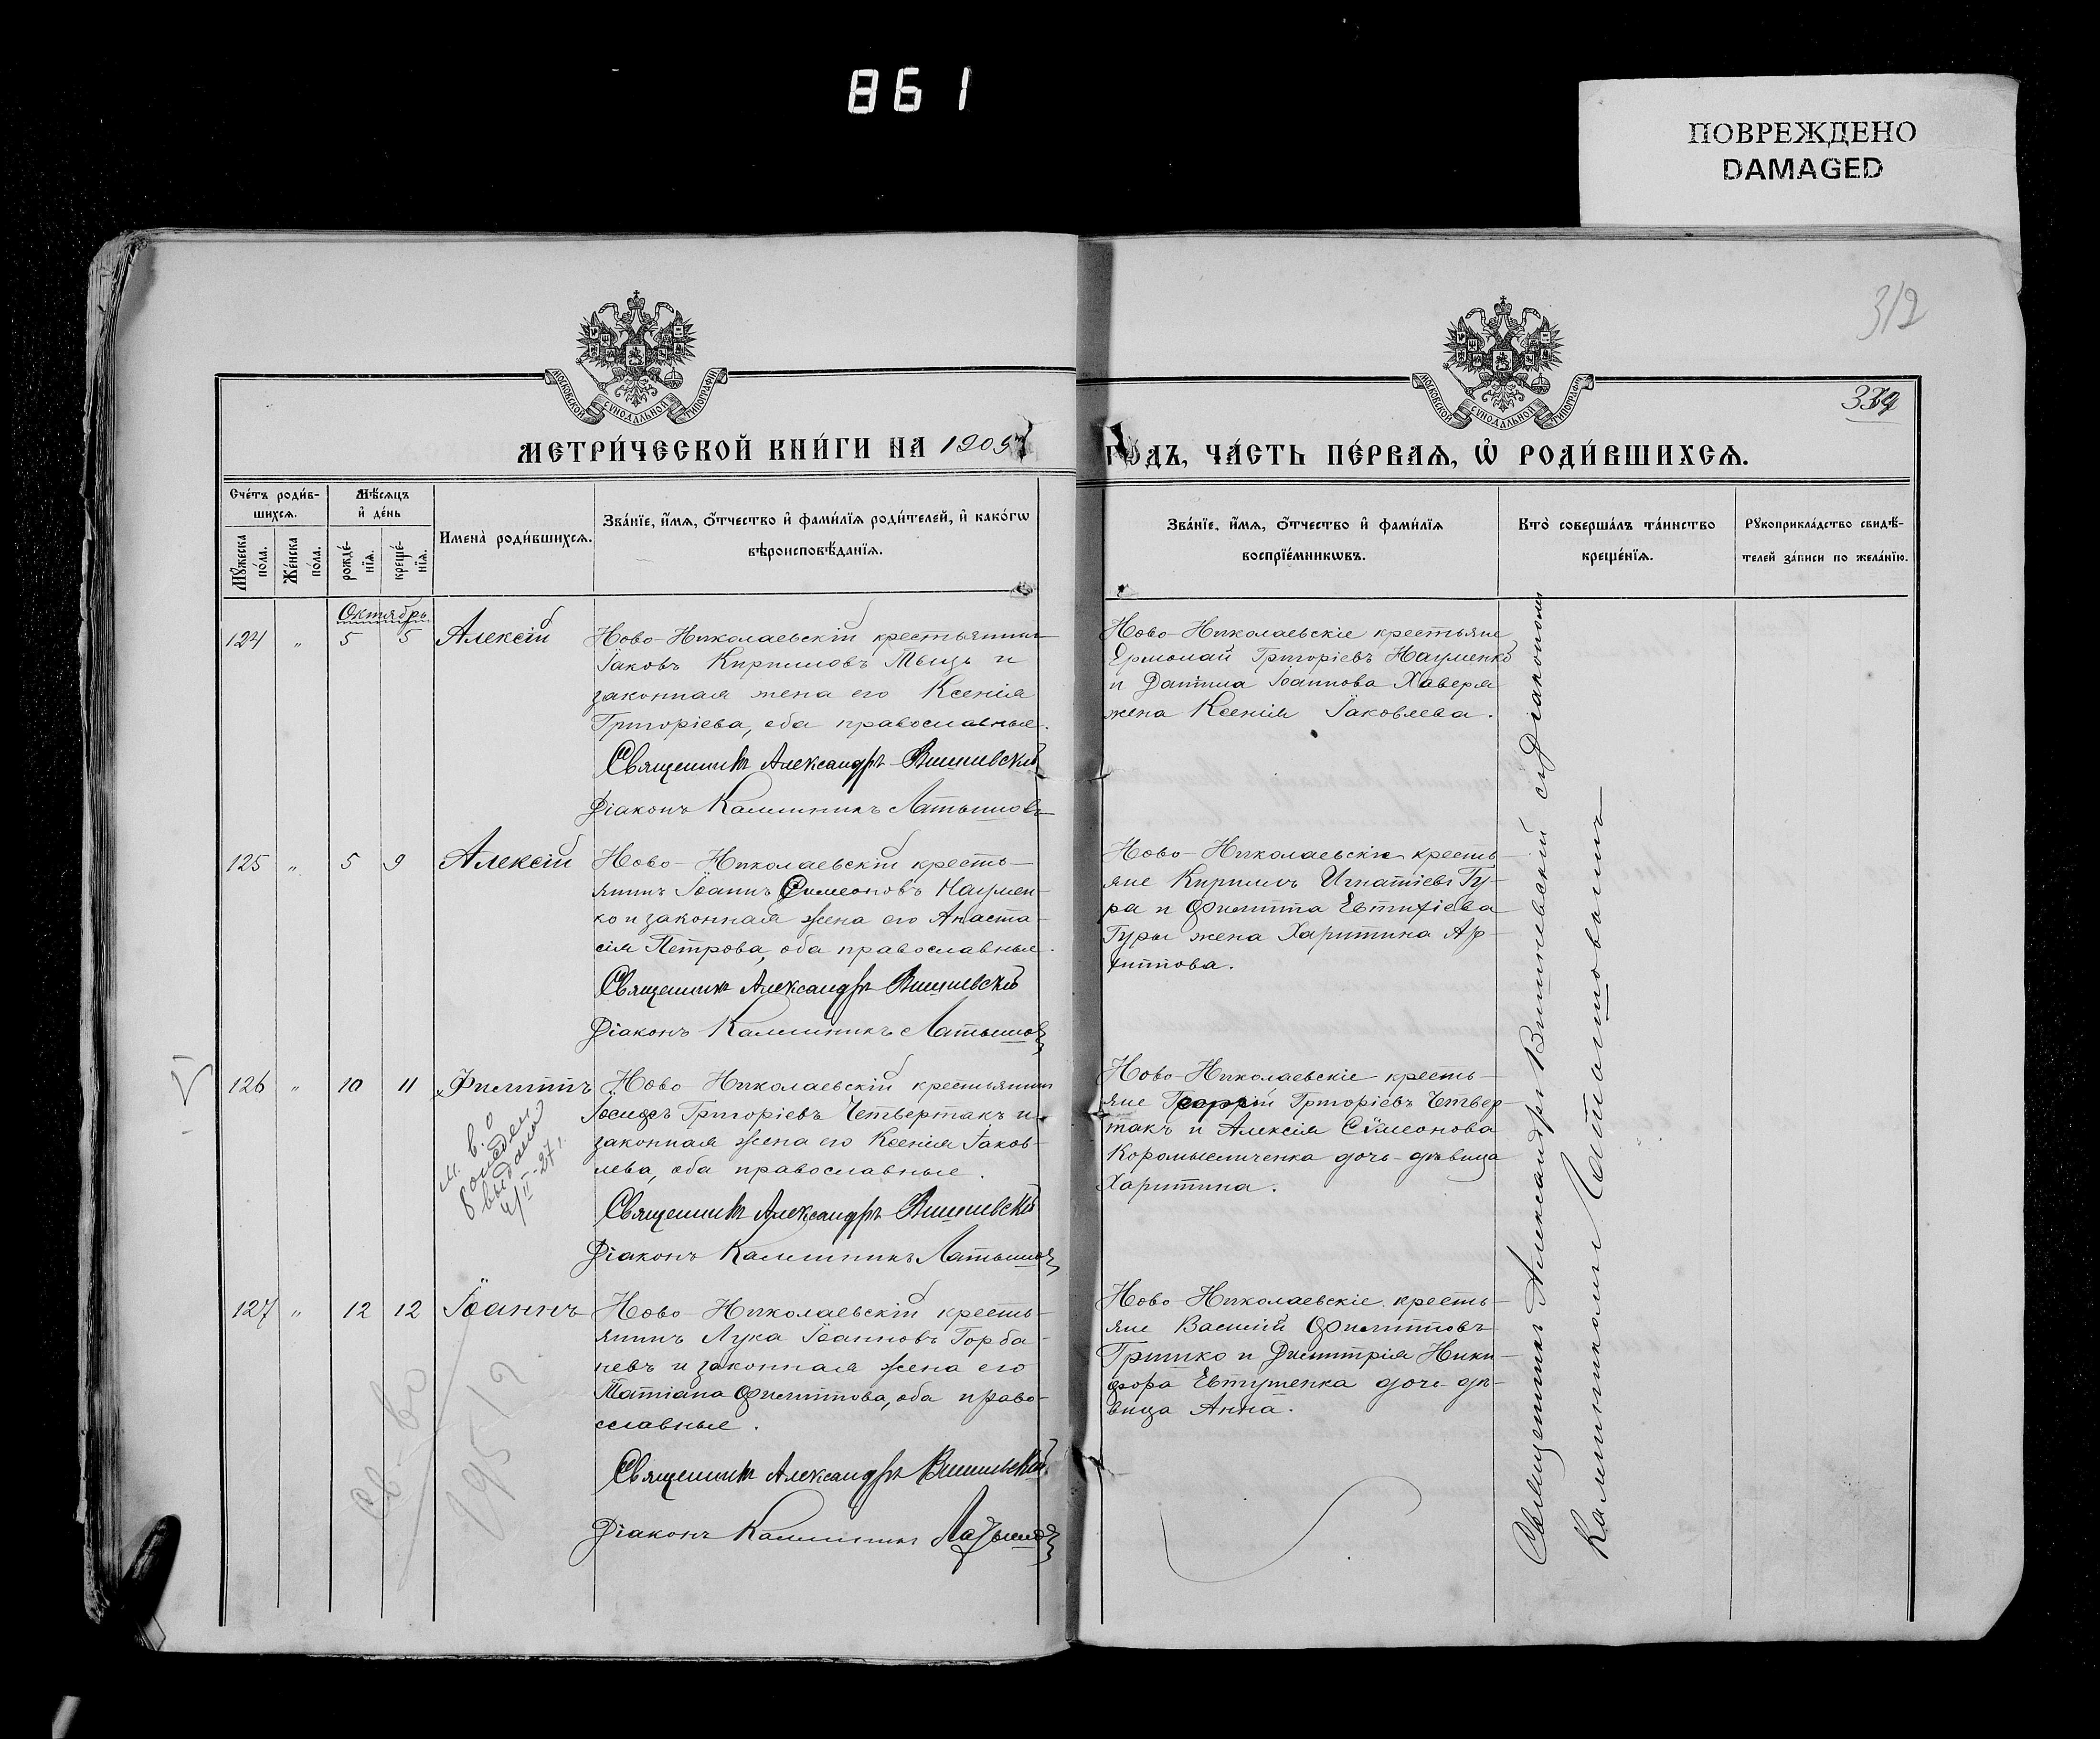 861
ПОВРЕЖДЕНО
DAMAGED
312
339
МОСКОВСКОЙ СѴНОДАЛЬНОЙ ТИПОГРАФІИ
МОСКОВСКОЙ СѴНОДАЛЬНОЙ ТИПОГРАФІИ
МЕТРИ́ЧЕСКОЙ КНИ́ГИ НА 1905
ГО́ДЪ, ЧА́СТЬ ПЕ́РВАѦ, Ѡ҆ РОДИ́ВШИХСѦ.
Сче́тъ роди́в-
шихсѧ.
Мꙋ́жеска
по́ла.
Же́нска
по́ла.
Мѣ́сѧцъ
и҆ де́нь
рожде́-
нїѧ.
креще́-
нїѧ.
Имена̀ роди́вшихсѧ.
Зва́нїе, и҆́мѧ, ѻ҆́тчество и҆ фами́лїѧ роди́телей, и҆ како́гѡ
вѣроисповѣ́данїѧ.
Зва́нїе, и҆́мѧ, ѻ҆́тчество и҆ фами́лїѧ
воспрїе́мникѡвъ.
Кто̀ соверша́лъ та́инство
креще́нїѧ.
Рꙋкоприкла́дство свидѣ́-
телей за́писи по жела́нїю.
Октябрь
124 " 5 5 Алексій
Ново-Николаевскій крестьянинъ
Іаковъ Кирилловъ Тыць и
законная жена его Ксенія
Григоріева, оба православные.
Священникъ Александръ Вишневскій
Діаконъ Каллиникъ Латышовъ
Ново-Николаевскіе крестьяне
Ермолай Григоріевъ Науменко
и Даніила Іоаннова Хаверя
жена Ксенія Іаковлева.
125 " 5 9 Алексій
Ново-Николаевскій кресть-
янинъ Іоаннъ Симеоновъ Наумен-
ко и законная жена его Анаста-
сія Петрова, оба православные.
Священникъ Александръ Вишневскій
Діаконъ Каллиникъ Латышовъ
Ново-Николаевскіе кресть-
яне Кириллъ Игнатіевъ Гу-
ра и Филиппа Евтихіева
Гуры жена Харитина Ар-
хиппова.
126 " 10 11 Филиппъ
М. в. о
выдана
4/II-27 г.
Ново-Николаевскій крестьянинъ
Іосифъ Григоріевъ Четвертакъ и
законная жена его Ксенія Іаков-
лева, оба православные.
Священникъ Александръ Вишневскій
Діаконъ Каллиникъ Латышовъ
Ново-Николаевскіе кресть-
яне Георгій Григоріевъ Четвер-
такъ и Алексія Симеонова
Коромысличенка дочь-дѣвица
Харитина.
127 " 12 12 Іоаннъ
Св-во
1951 г
Ново-Николаевскій кресть-
янинъ Лука Іоанновъ Горба-
невъ и законная жена его
Татіана Филиппова, оба право-
славные.
Священникъ Александръ Вишневскій
Діаконъ Каллиникъ Латышовъ
Ново-Николаевскіе кресть-
яне Василій Филипповъ
Гришко и Димитрія Ники-
фора Евтушенка дочь дѣ-
вица Анна.
Священникъ Александръ Вишневскій съ діакономъ
Каллиникомъ Латышовымъ